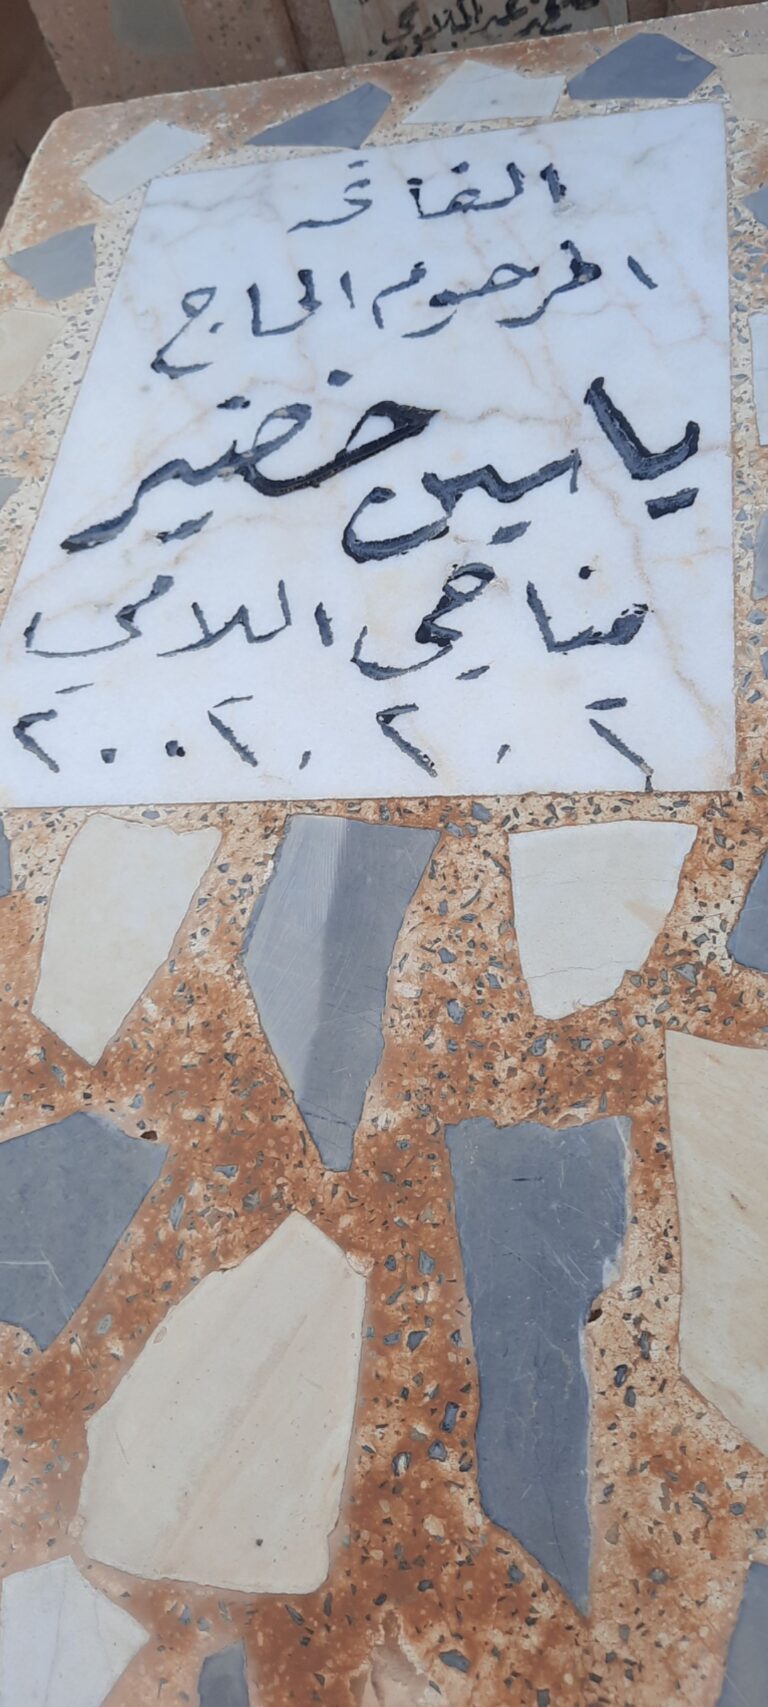 الفاتحة
المرحوم الحاج
ياسين خضير
مناحي اللامي
٢٠٠٢.٢.٦